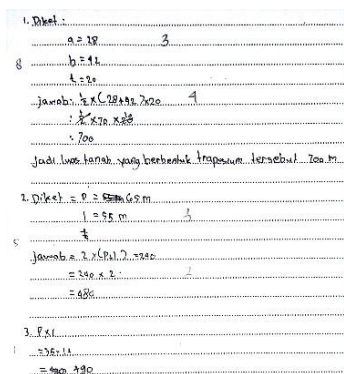 1. Diket :
a = 28 3
8 b = 42
t = 20
jawab: ½ x (28+42) x20 4
: ½ x 70 x 20
: 700
Jadi luas tanah yang berbentuk trapesium tersebut 700 m
2. Diket = P = 65 m
l = 55 m 3
t
5
jawab = 2 x (P+l) = 240
= 240 x 2 2
= 480
3. P x l
1 = 36 x 11
+90